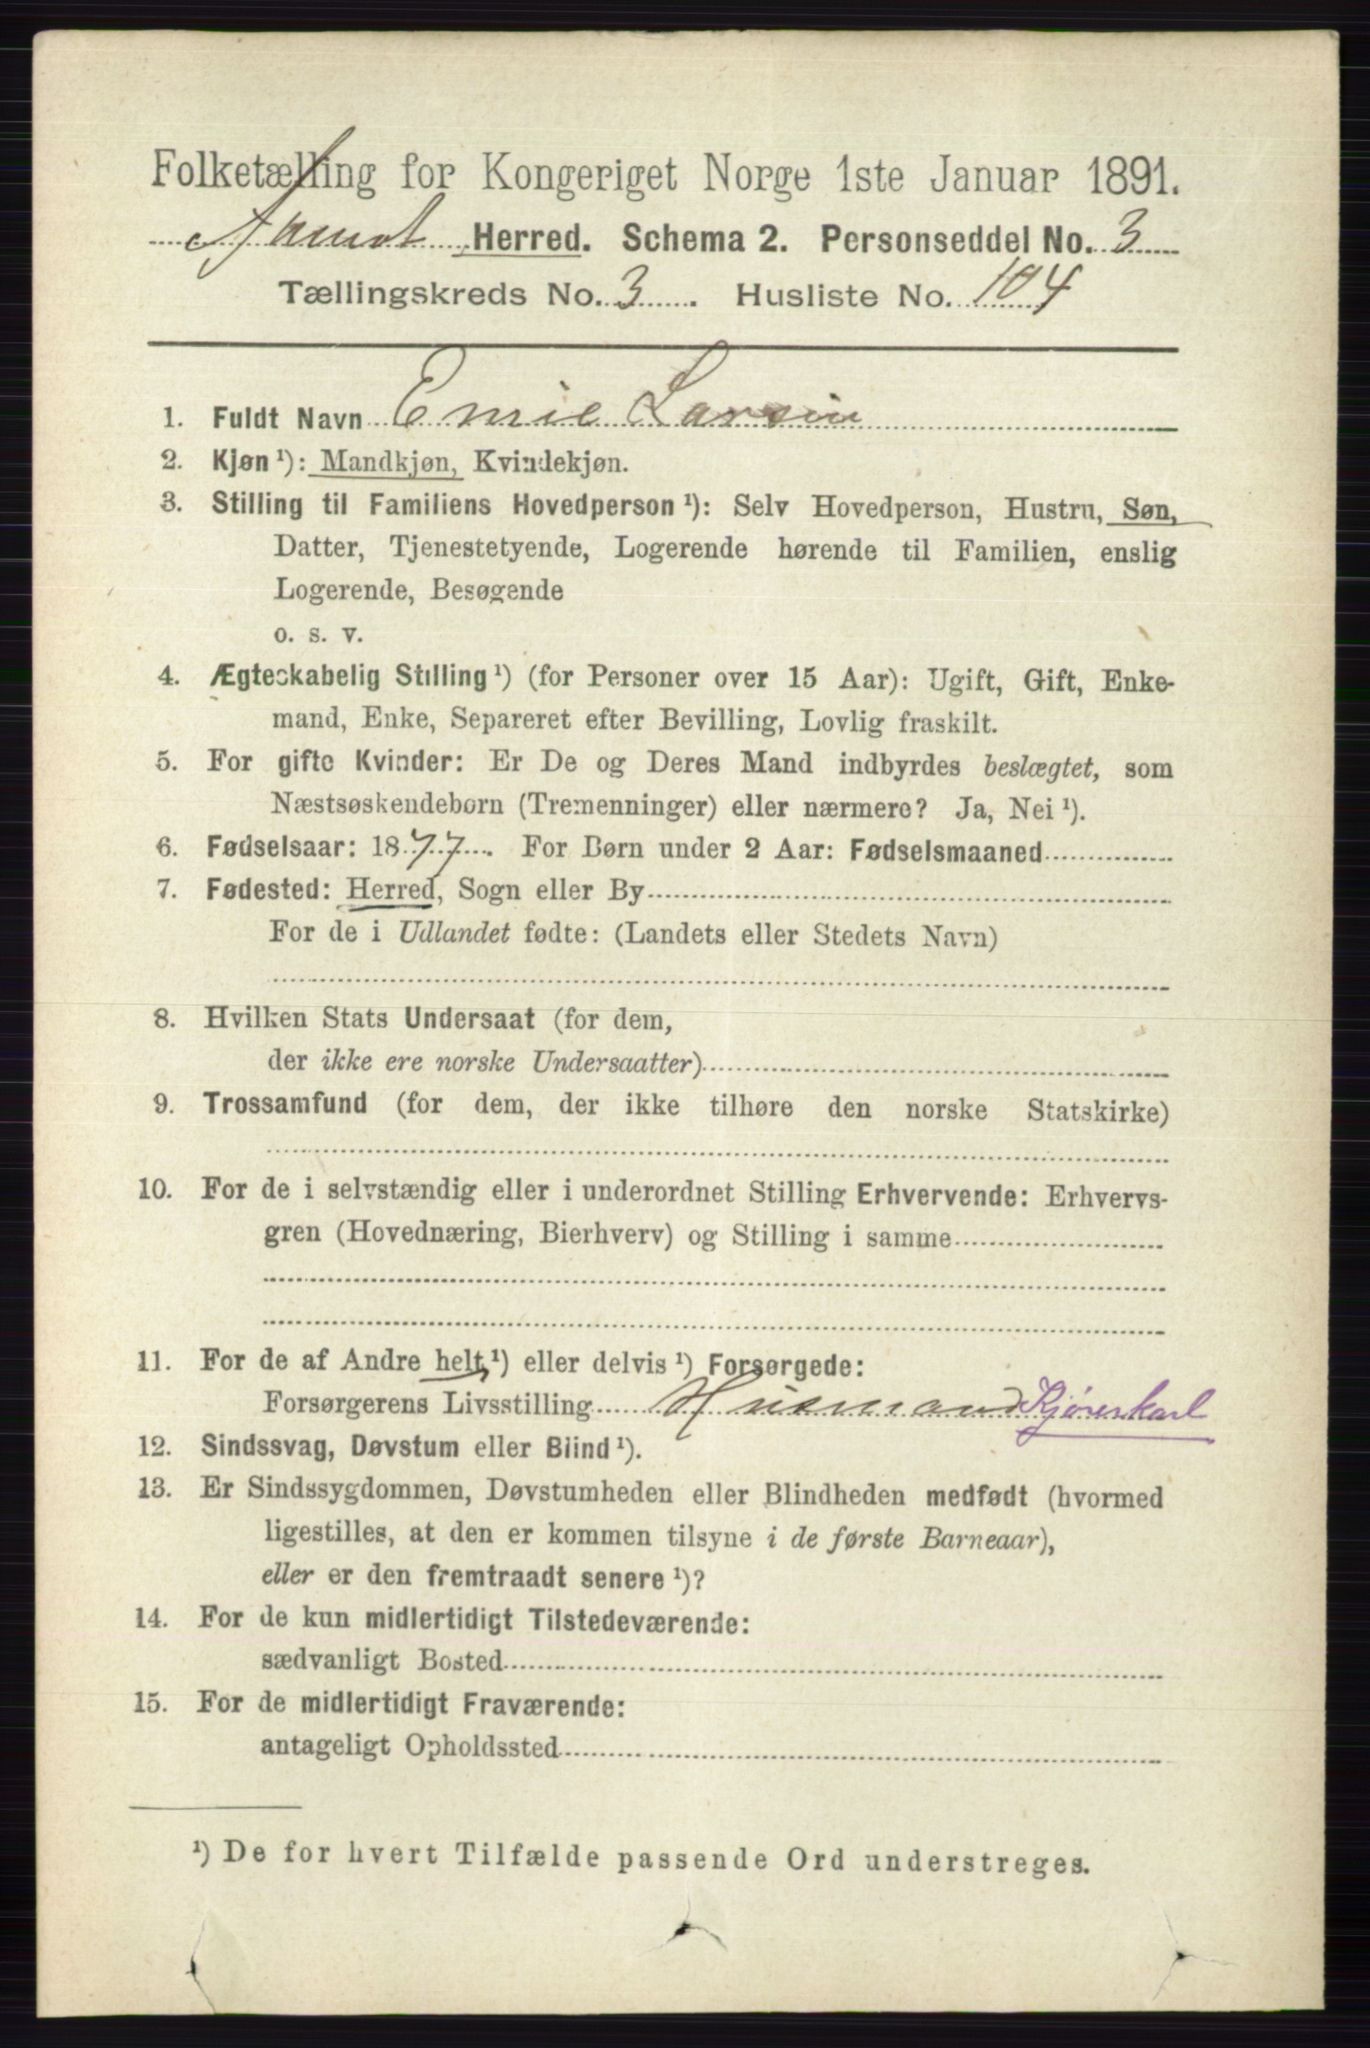 Folketælling for Kongeriget Norge 1ste Januar 1891.
Herred. Schema 2. Personseddel No. 3
Tællingskreds No. 3. Husliste No. 104
1. Fuldt Navn Emil Larsen
2. Kjøn ¹): Mandkjøn, Kvindekjøn.
3. Stilling til Familiens Hovedperson ¹): Selv Hovedperson, Hustru, Søn,
Datter, Tjenestetyende, Logerende hørende til Familien, enslig
Logerende, Besøgende
o. s. v.
4. Ægteskabelig Stilling ¹) (for Personer over 15 Aar): Ugift, Gift, Enke-
mand, Enke, Separeret efter Bevilling, Lovlig fraskilt.
5. For gifte Kvinder: Er De og Deres Mand indbyrdes beslægtet, som
Næstsøskendebørn (Tremenninger) eller nærmere? Ja, Nei ¹).
6. Fødselsaar: 1877. For Børn under 2 Aar: Fødselsmaaned
7. Fødested: Herred, Sogn eller By
For de i Udlandet fødte: (Landets eller Stedets Navn)
8. Hvilken Stats Undersaat (for dem,
der ikke ere norske Undersaatter)
9. Trossamfund (for dem, der ikke tilhøre den norske Statskirke)
10. For de i selvstændig eller i underordnet Stilling Erhvervende: Erhvervs-
gren (Hovednæring, Bierhverv) og Stilling i samme
11. For de af Andre helt ¹) eller delvis ¹) Forsørgede:
Forsørgerens Livsstilling Husmand Kjøreskarl
12. Sindssvag, Døvstum eller Blind ¹).
13. Er Sindssygdommen, Døvstumheden eller Blindheden medfødt (hvormed
ligestilles, at den er kommen tilsyne i de første Barneaar),
eller er den fremtraadt senere ¹)?
14. For de kun midlertidigt Tilstedeværende:
sædvanligt Bosted
15. For de midlertidigt Fraværende:
antageligt Opholdssted
¹) De for hvert Tilfælde passende Ord understreges.